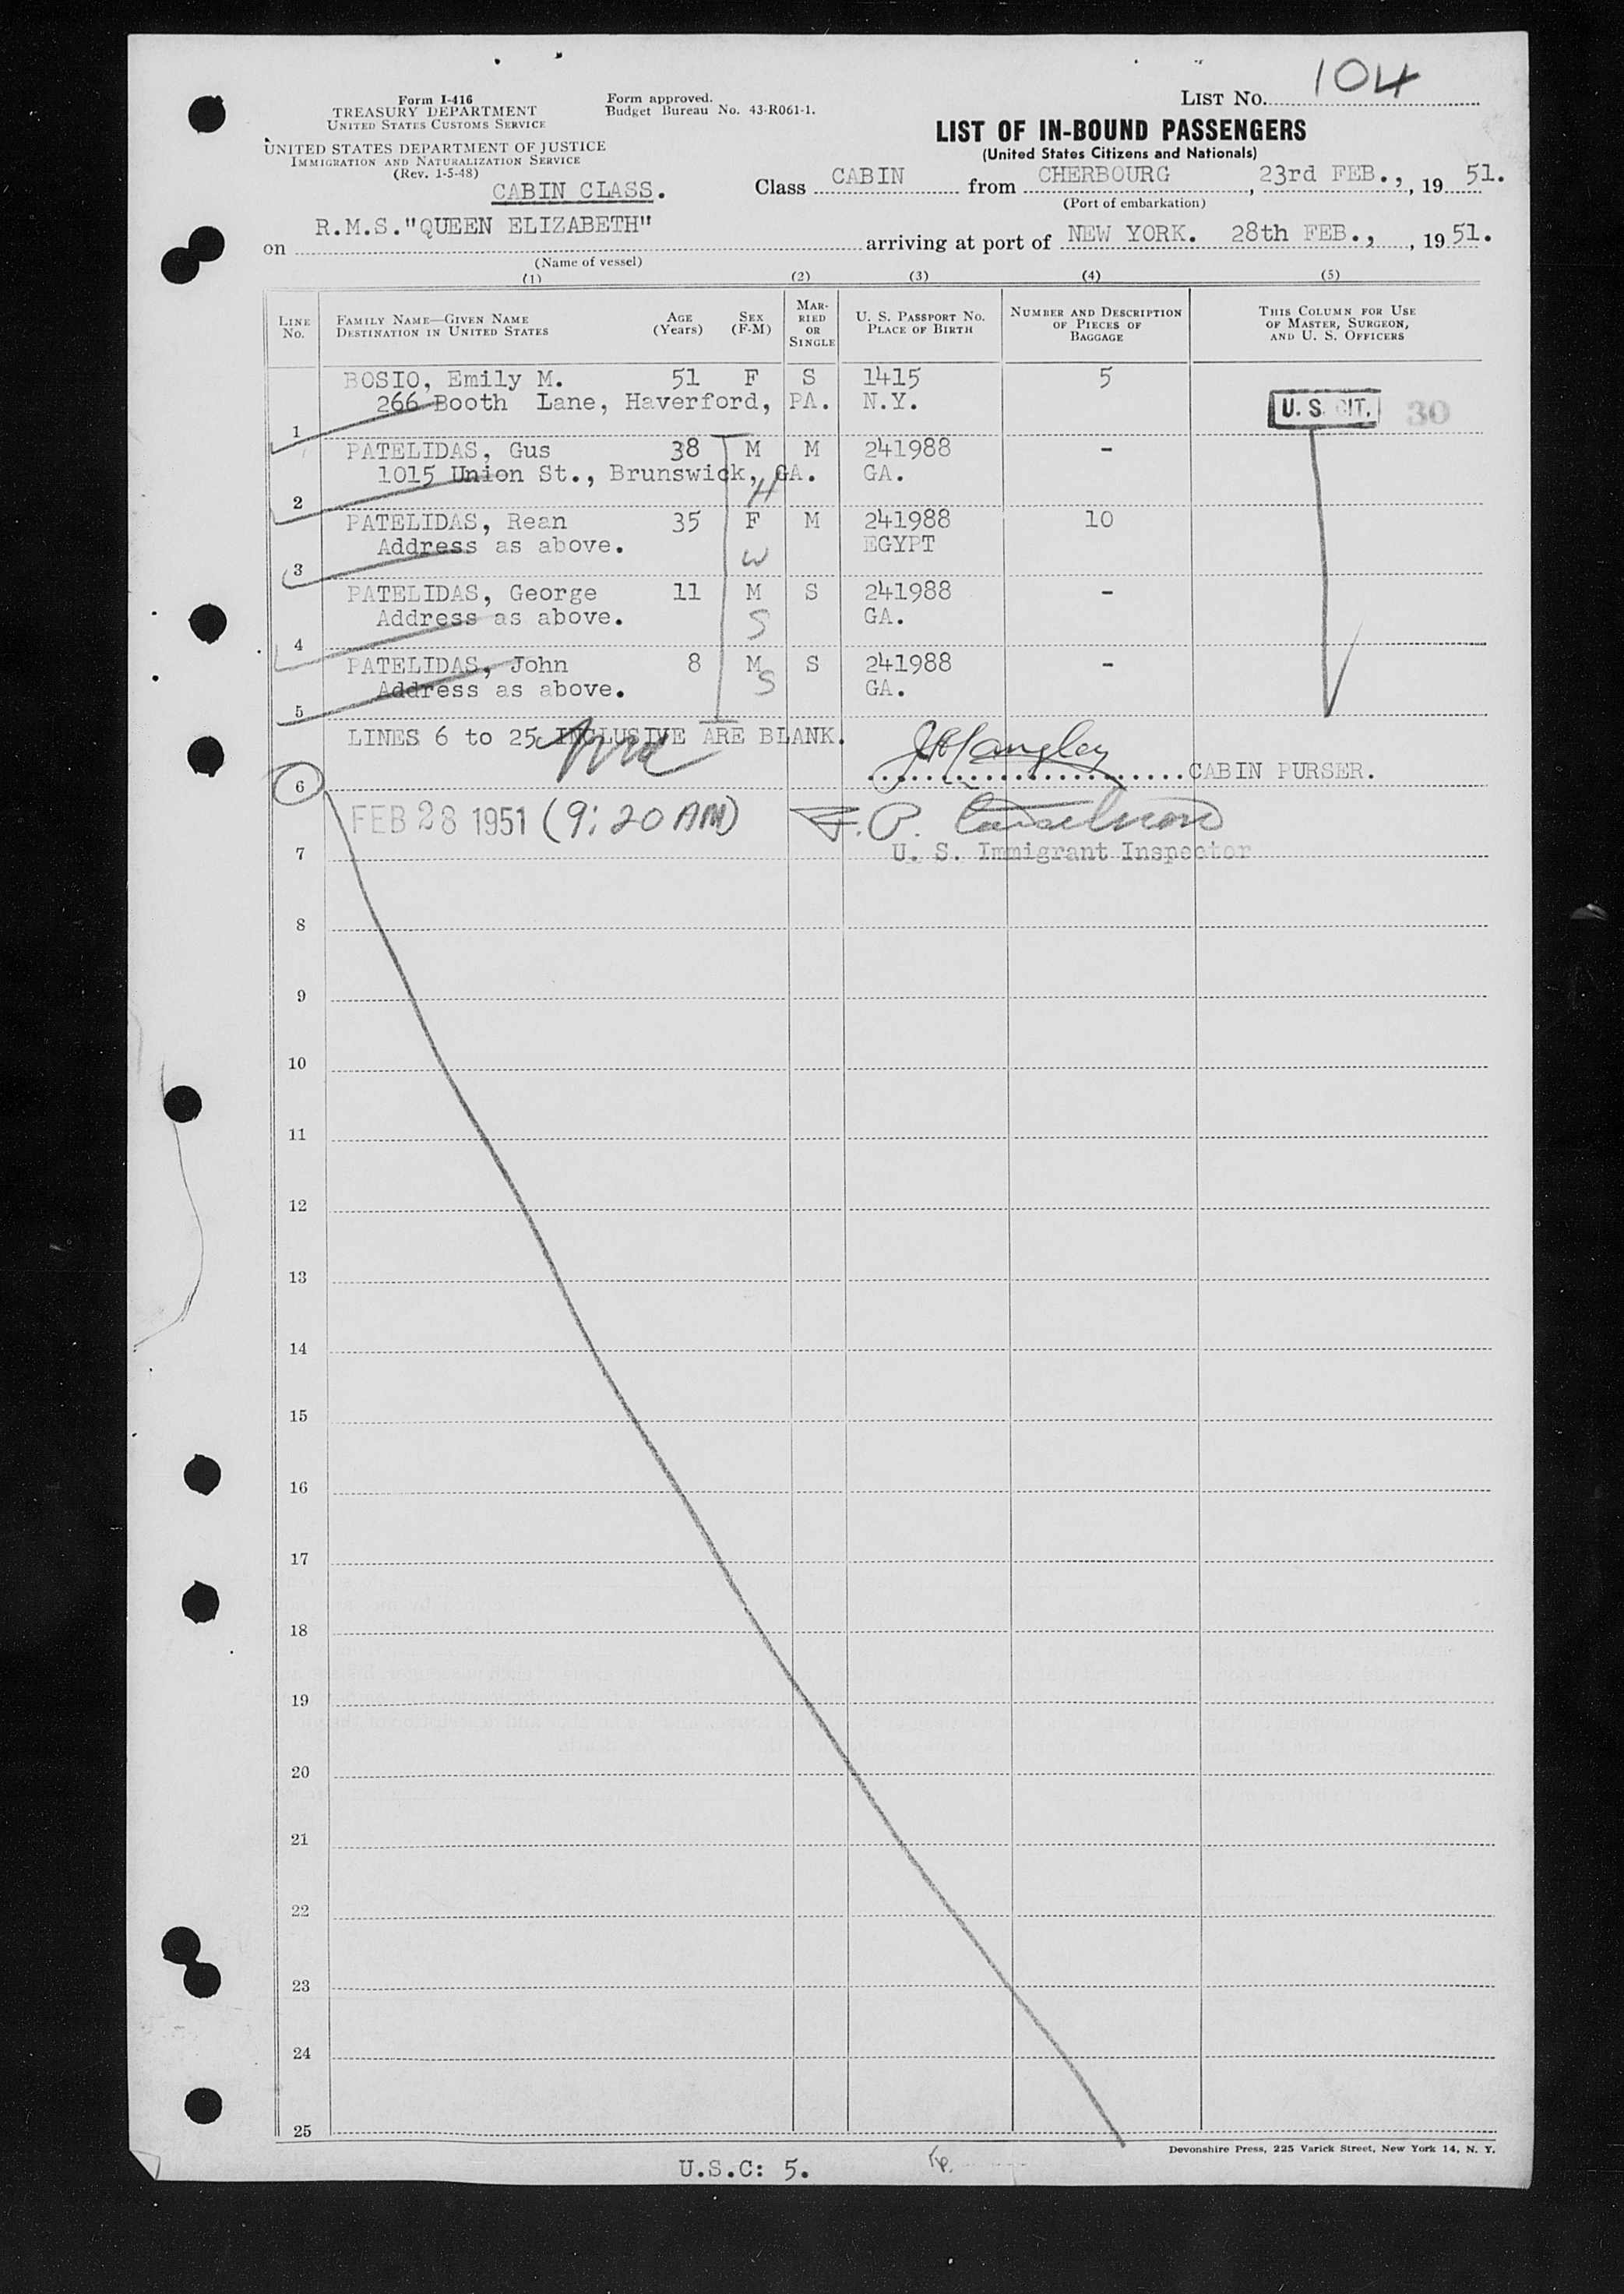 LIST No. 104
Form I-416
TREASURY DEPARTMENT
UNITED STATES CUSTOMS SERVICE
Form approved.
Budget Bureau No. 43-R061-1.
UNITED STATES DEPARTMENT OF JUSTICE
IMMIGRATION AND NATURALIZATION SERVICE
(Rev. 1-5-48)
LIST OF IN-BOUND PASSENGERS
(United States Citizens and Nationals)
CABIN CLASS.
Class CABIN from CHERBOURG, 23rd FEB., , 19 51.
(Port of embarkation)
on R.M.S."QUEEN ELIZABETH" arriving at port of NEW YORK. 28th FEB., , 19 51.
(Name of vessel)
(1) (2) (3) (4) (5)
LINE No. FAMILY NAME—GIVEN NAME DESTINATION IN UNITED STATES AGE (Years) SEX (F-M) MARRIED OR SINGLE U. S. PASSPORT No. PLACE OF BIRTH NUMBER AND DESCRIPTION OF PIECES OF BAGGAGE THIS COLUMN FOR USE OF MASTER, SURGEON, AND U. S. OFFICERS
BOSIO, Emily M. 51 F S 1415 5
266 Booth Lane, Haverford, PA. N.Y. U. S. CIT. 30
1
PATELIDAS, Gus 38 M M 241988 -
1015 Union St., Brunswick, GA. GA.
2 H
PATELIDAS, Rean 35 F M 241988 10
Address as above. W EGYPT
3
PATELIDAS, George 11 M S 241988 -
Address as above. S GA.
4
PATELIDAS, John 8 M S 241988 -
Address as above. S GA.
5
LINES 6 to 25 INCLUSIVE ARE BLANK.
6 CABIN PURSER.
FEB 28 1951 (9:20 AM)
7 U. S. Immigrant Inspector
8
9
10
11
12
13
14
15
16
17
18
19
20
21
22
23
24
25
Devonshire Press, 225 Varick Street, New York 14, N. Y.
U.S.C: 5.